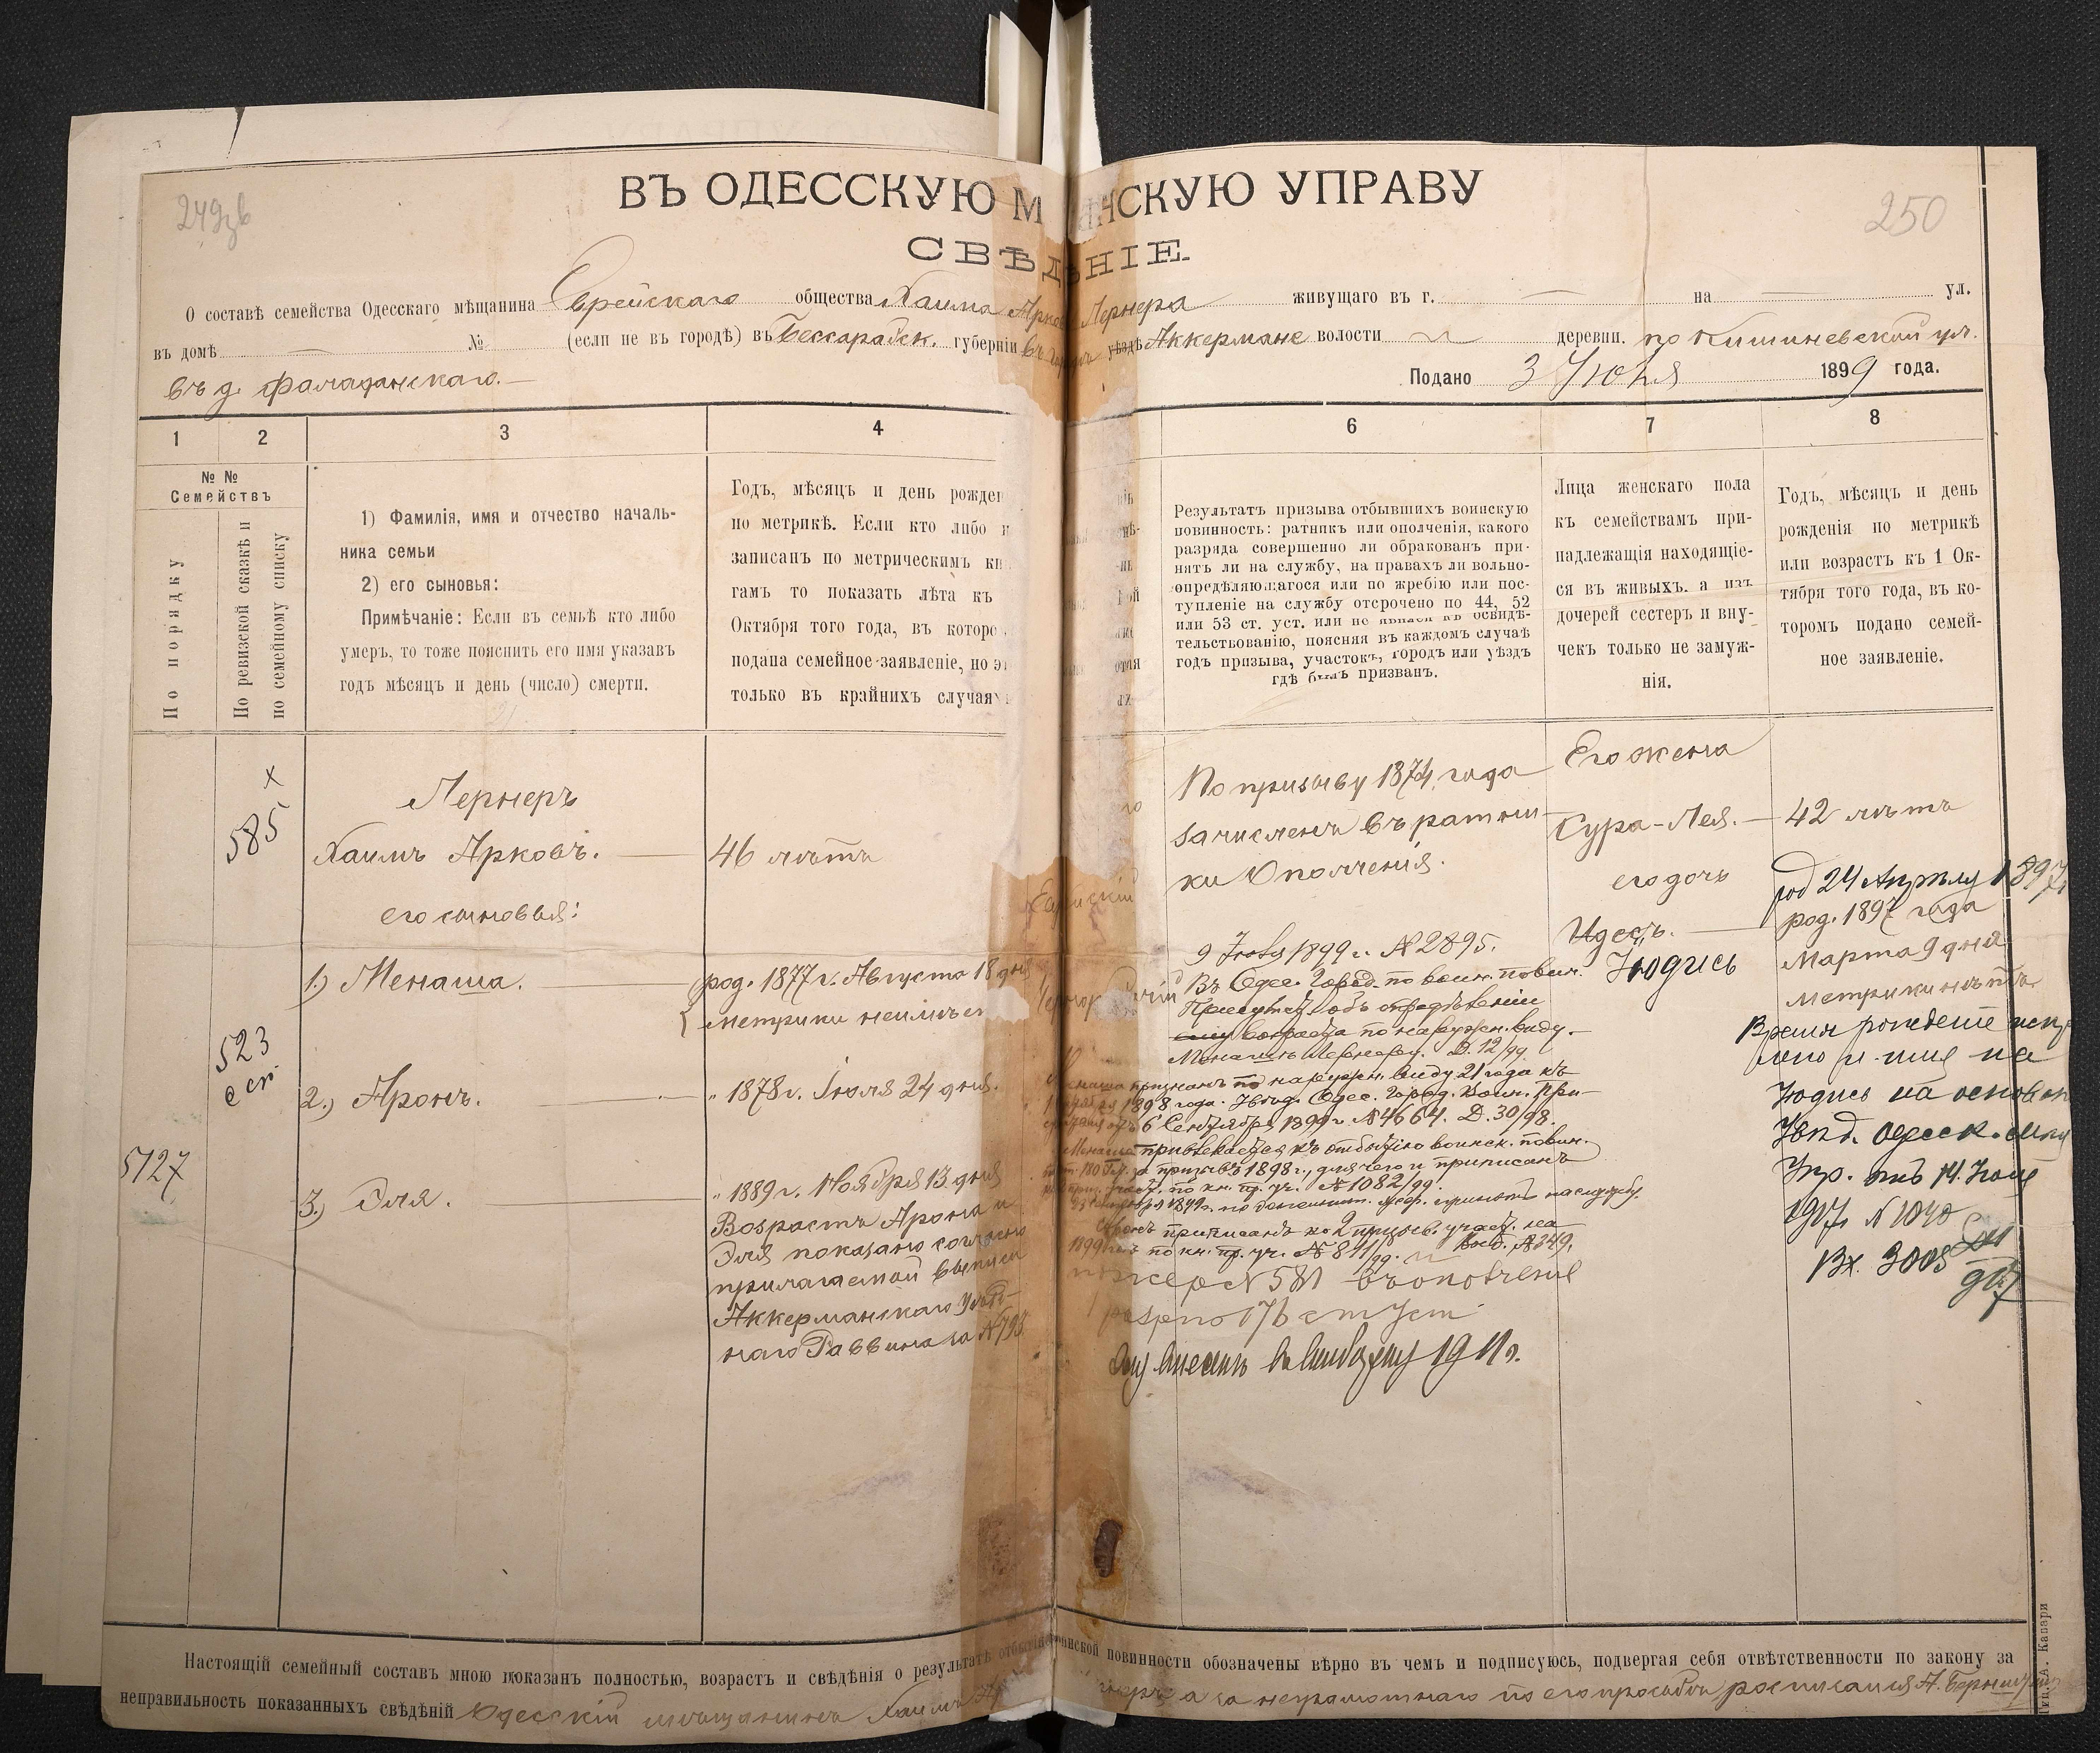 249 зв
250
ВЪ ОДЕССКУЮ М НСКУЮ УПРАВУ
СВѢДѢНІЕ.
О составѣ семейства Одесскаго мѣщанина Еврейскаго общества Хаима Арков Лернера живущаго въ г. — на — ул.
въ домѣ — № (если не въ городѣ) въ Бессарабск. губерніи въ уѣздѣ Аккермане волости деревни. по Кишиневской ул.
въ д.
Подано 3 Іюля 1899 года.
1 2 3 4 6 7 8
№ №
Семействъ
По порядку
По ревизской сказкѣ и
по семейному списку
1) Фамилія, имя и отчество началь-
ника семьи
2) его сыновья:
Примѣчаніе: Если въ семьѣ кто либо
умеръ, то тоже пояснить его имя указавъ
годъ мѣсяцъ и день (число) смерти.
Годъ, мѣсяцъ и день рожден
по метрикѣ. Если кто либо н
записанъ по метрическимъ кн
гамъ то показать лѣта къ
Октября того года, въ которо
подана семейное заявленіе, но э
только въ крайнихъ случая
Результатъ призыва отбывшихъ воинскую
повинность: ратникъ или ополченія, какого
разряда совершенно ли обракованъ при-
нятъ ли на службу, на правахъ ли вольно-
опредѣляющагося или по жребію или пос-
тупленіе на службу отсрочено по 44, 52
или 53 ст. уст. или не явился къ освидѣ-
тельствованію, поясняя въ каждомъ случаѣ
годъ призыва, участокъ, городъ или уѣздъ
гдѣ былъ призванъ.
Лица женскаго пола
къ семействамъ при-
надлежащія находящіе-
ся въ живыхъ. а изъ
дочерей сестеръ и вну-
чекъ только не замуж-
нія.
Годъ, мѣсяцъ и день
рожденія по метрикѣ
или возрастъ къ 1 Ок-
тября того года, въ ко-
торомъ подано семей-
ное заявленіе.
х
585
Лернеръ
Хаимъ Арковъ. — 46 лѣтъ
его сыновья:
По призыву 1874 года
зачисленъ въ ратни-
ки Ополченія.
Его жена
Сура-Лея. — 42 лѣтъ
его дочь
Идесъ. —
Юдись
род 24 Апрѣля 1897
род. 1897 года
Марта 9 дня
метрики нѣтъ
Время рожденіе
имя на
Юдись на основан
Одесск.
Упр. отъ 14 Іюля
1907 № 1040
Вх. 3005
907
1.) Менаша. — род. 1877 г. Августа 18 дня
метрики неимѣет
523
2.) Аронъ. — " 1878 г. Іюля 24 дня.
5127
3.) Эля. — " 1889 г. Ноября 13 дня
Возрастъ Арона и
Эля показано согласно
прилагаемой выписи
Аккерманскаго Уѣзд-
наго Раввина за № 793
9 Іюля 1899 г. № 2895.
Въ Одес. Город. по воин. повин.
Присутст. объ опредѣленіи
возраста по наружн. виду.
Менашѣ Лернеру. Д. 12/99.
признанъ по наружн. виду 21 года къ
1898 года. Увѣд. Одес. Город. Воин. При-
отъ 6 Сентября 1899 г. № 4664. Д. 30/98.
Менаша привлекается къ отбытію воинск. повин.
призывѣ 1898 г., для чего и приписанъ
участ. по кн. пр. уч. № 1082/99.
принятъ на службу.
Аронъ приписанъ ко 2 призыв. участ. на
1899 годъ по кн. пр. уч. № 811/99. № 349.
№ 581 въ ополченіе
1 разр по 176 ст Уст
1911 г.
Настоящій семейный составъ мною показанъ полностью, возрастъ и свѣдѣнія о результатѣ отбытія воинской повинности обозначены вѣрно въ чемъ и подписуюсь, подвергая себя отвѣтственности по закону за
неправильность показанныхъ свѣдѣній Одесскій мѣщанинъ Хаимъ Ар а за неграмотнаго по его просьбѣ росписался